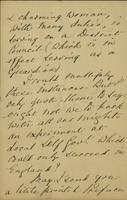 a charming woman,
with many duties, is
serving on a District
Council (which is in
effect serving as a
guardian)
I could multiply
these instances. But
only quote them to say
ought not we to back
with all our might
an experiment at
Local Self Gov^t which
could only succeed in
England
May I send you
a little printed Preface